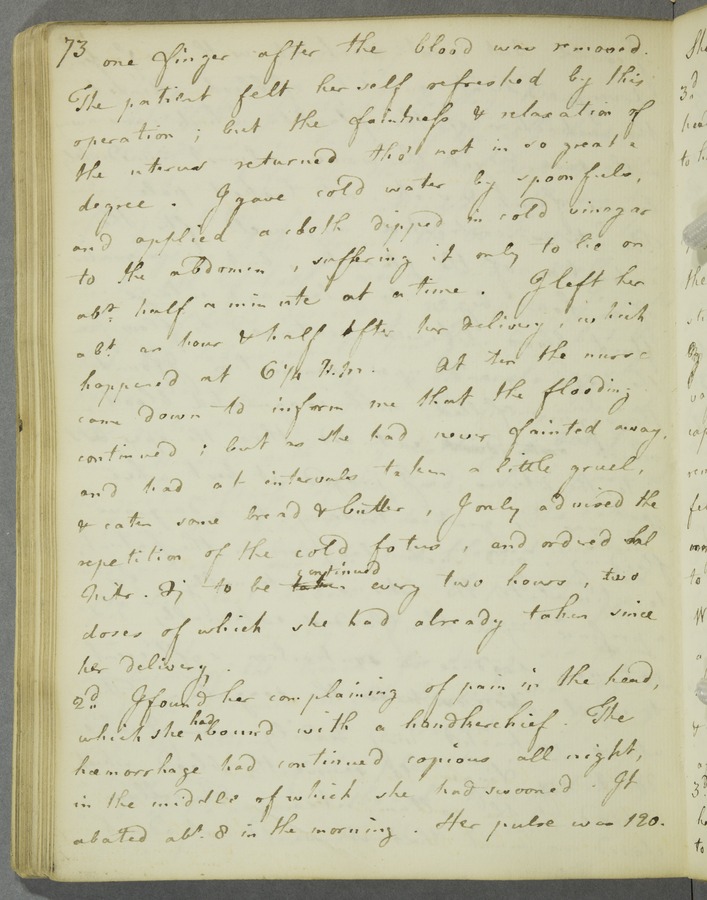 73 one finger after the blood was removed.
The patient felt herself refreshed by this
operation ; but the faintness & relaxation of
the uterus returned tho' not in so great a
degree . I gave cold water by spoonfuls,
and applied a cloth dipped in cold vinegar
to the abdomen , suffering it only to lie on
abt. half a minute at a time . I left her
abt an hour & half after her delivery , which
happened at 6 1/4 P.m. At ten the nurse
came down to inform me that the flooding
continued ; but as she had never fainted away,
and had at intervals taken a little gruel,
& eaten some bread & butter , I only advised the
repetition of the cold fotus , and ordered Sal
continued
Nitr. ʒj to be taken every two hours , two
doses of which she had already taken since
her delivery .
2d. I found her complaining of pain in the head,
had
which she bound with a handkerchief . The
hæmorrhage had continued copious all night,
in the middle of which she had swooned . It
abated abt. 8 in the morning . Her pulse was 120.